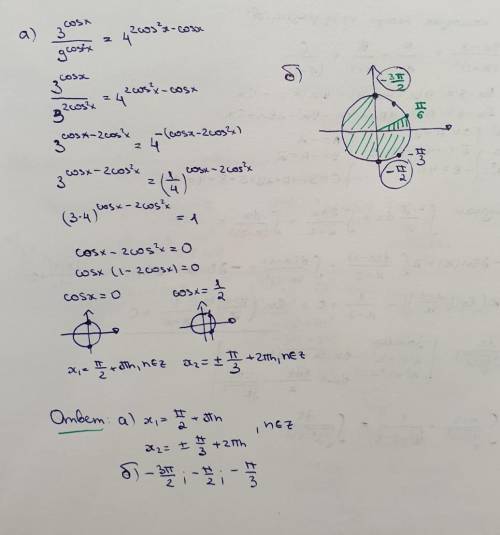 а) 3^cosx / 9^cos²x = 4^2cos²x-cosx
3^cosx / 3^2cos²x = 4^2cos²x-cosx
3^cosx-2cos²x = 4^-(cosx-2cos²x)
3^cosx-2cos²x = (1/4)^cosx-2cos²x
(3·4)^cosx-2cos²x = 1
cosx - 2cos²x = 0
cosx (1-2cosx) = 0
cosx = 0 cosx = 1/2
x₁ = π/2 + πn, n∈Z x₂ = ± π/3 + 2πn, n∈Z
б)
-3π/2
π/6
-π/3
-π/2
Ответ: а) x₁ = π/2 + πn
x₂ = ± π/3 + 2πn , n∈Z
б) -3π/2; -π/2; -π/3